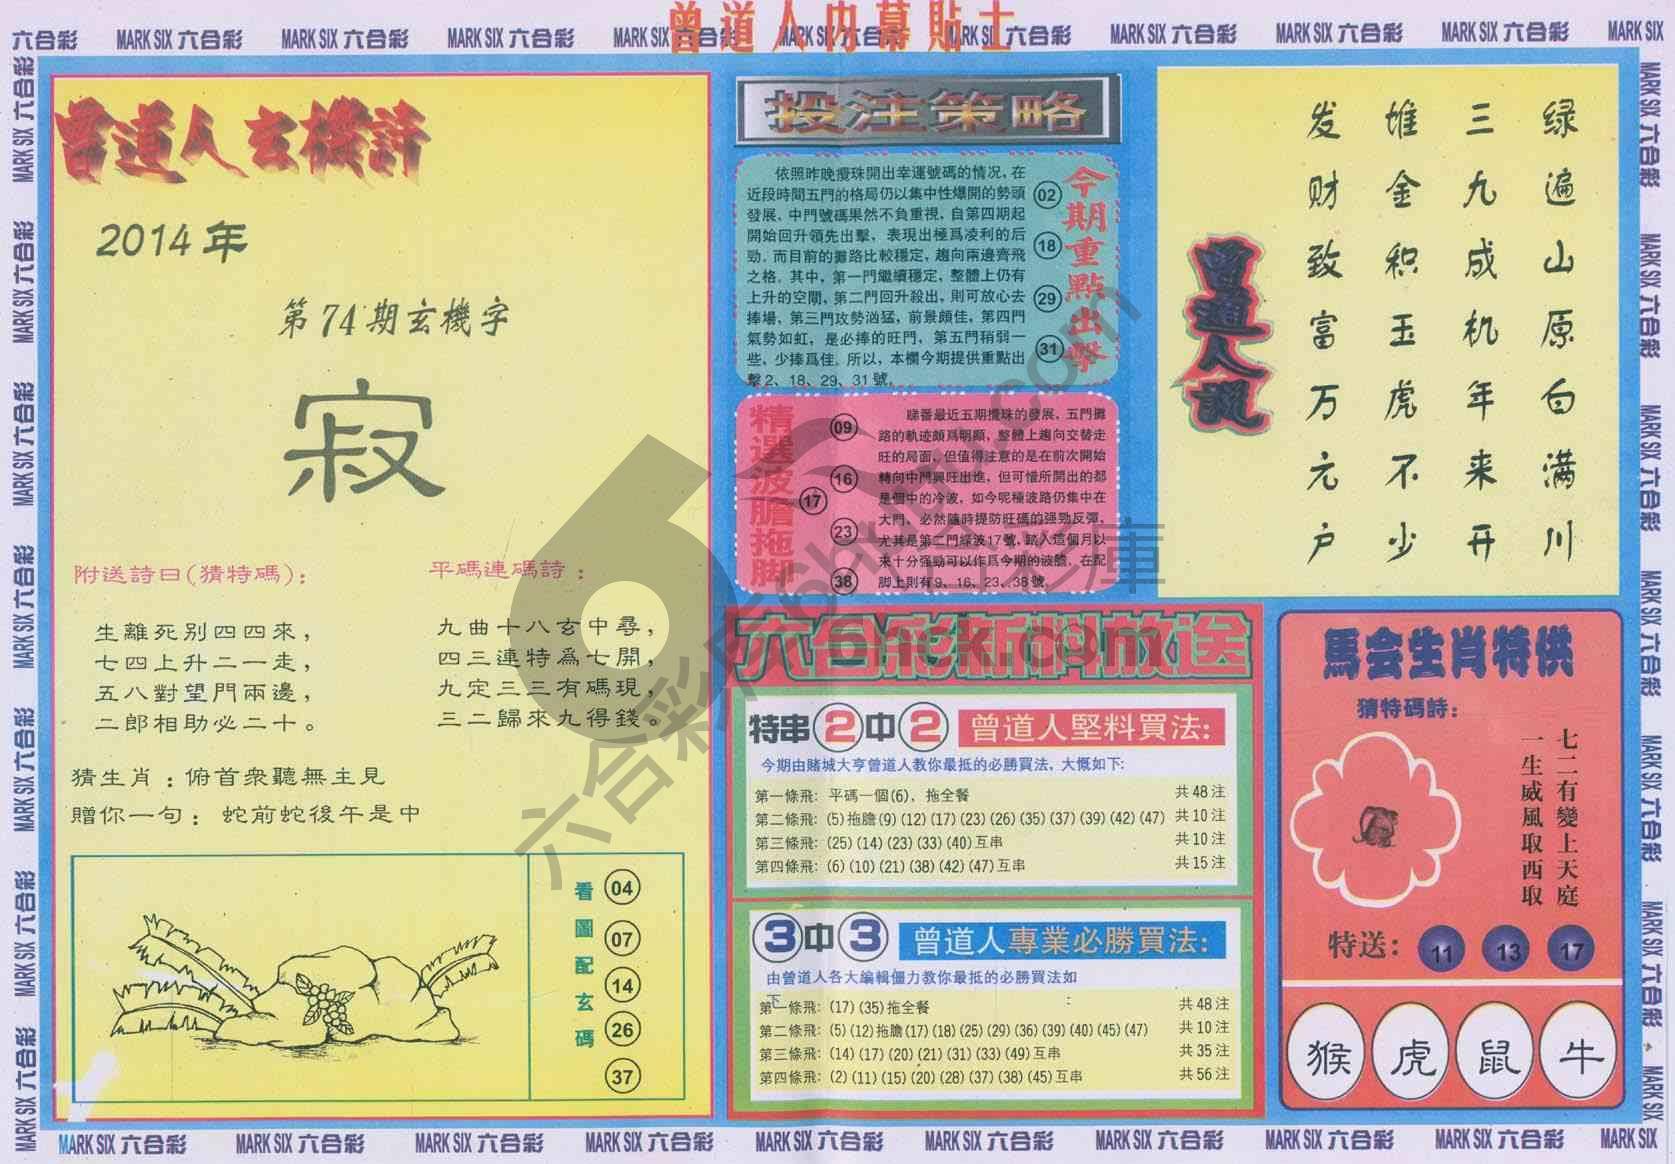 六合彩 MARK SIX 六合彩 MARK SIX 六合彩 MARK SIX 六合彩 MARK SIX 六合彩 MARK SIX 六合彩 MARK SIX 六合彩 MARK SIX 六合彩 MARK SIX 六合彩 MARK SIX
曾道人内幕貼士
曾道人玄機詩
2014年
第74期玄機字
寂
附送詩曰(猜特碼)：
生離死别四四來，
七四上升二一走，
五八對望門兩邊，
二郎相助必二十。
平碼連碼詩：
九曲十八玄中尋，
四三連特爲七開，
九定三三有碼現，
三二歸來九得錢。
猜生肖：俯首衆聽無主見
贈你一句：蛇前蛇後午是中
看圖配玄碼
04
07
14
26
37
投注策略
依照昨晚攪珠開出幸運號碼的情况，在
近段時間五門的格局仍以集中性爆開的勢頭
發展，中門號碼果然不負重視，自第四期起
開始回升領先出擊，表現出極爲凌利的后
勁，而目前的攤路比較穩定，趨向兩邊齊飛
之格。其中，第一門繼續穩定，整體上仍有
上升的空間，第二門回升殺出，則可放心去
捧場，第三門攻勢汹猛，前景頗佳，第四門
氣勢如虹，是必捧的旺門，第五門稍弱一
些，少捧爲佳。所以，本欄今期提供重點出
擊2、18、29、31號。
02
18
29
31
今期重點出擊
精選波膽拖脚
09
16
17
23
38
睇番最近五期攪珠的發展，五門攤
路的軌迹頗爲明顯，整體上趨向交替走
旺的局面，但值得注意的是在前次開始
轉向中門興旺出進，但可惜所開出的都
是個中的冷波，如今呢種波路仍集中在
大門，必然隨時提防旺碼的强勁反彈，
尤其是第二門緑波17號，踏入這個月以
來十分强勁可以作爲今期的波膽，在配
脚上則有9、16、23、38號。
六合彩新料放送
特串2中2 曾道人堅料買法：
今期由賭城大亨曾道人教你最抵的必勝買法，大慨如下：
第一條飛：平碼一個(6)，拖全餐 共48注
第二條飛：(5)拖膽(9)(12)(17)(23)(26)(35)(37)(39)(42)(47) 共10注
第三條飛：(25)(14)(23)(33)(40)互串 共10注
第四條飛：(6)(10)(21)(38)(42)(47)互串 共15注
3中3 曾道人專業必勝買法：
由曾道人各大編輯僵力教你最抵的必勝買法如
下：
第一條飛：(17)(35)拖全餐 共48注
第二條飛：(5)(12)拖膽(17)(18)(25)(29)(36)(39)(40)(45)(47) 共10注
第三條飛：(14)(17)(20)(21)(31)(33)(49)互串 共35注
第四條飛：(2)(11)(15)(20)(28)(37)(38)(45)互串 共56注
绿遍山原白满川
三九成机年来开
堆金积玉虎不少
发财致富万元户
曾道人說
馬会生肖特供
猜特碼詩：
七二有變上天庭
一生威風取西取
特送：11 13 17
猴 虎 鼠 牛
MARK SIX 六合彩 MARK SIX 六合彩 MARK SIX 六合彩 MARK SIX 六合彩 MARK SIX 六合彩 MARK SIX 六合彩 MARK SIX 六合彩 MARK SIX 六合彩 MARK SIX 六合彩 MARK SIX